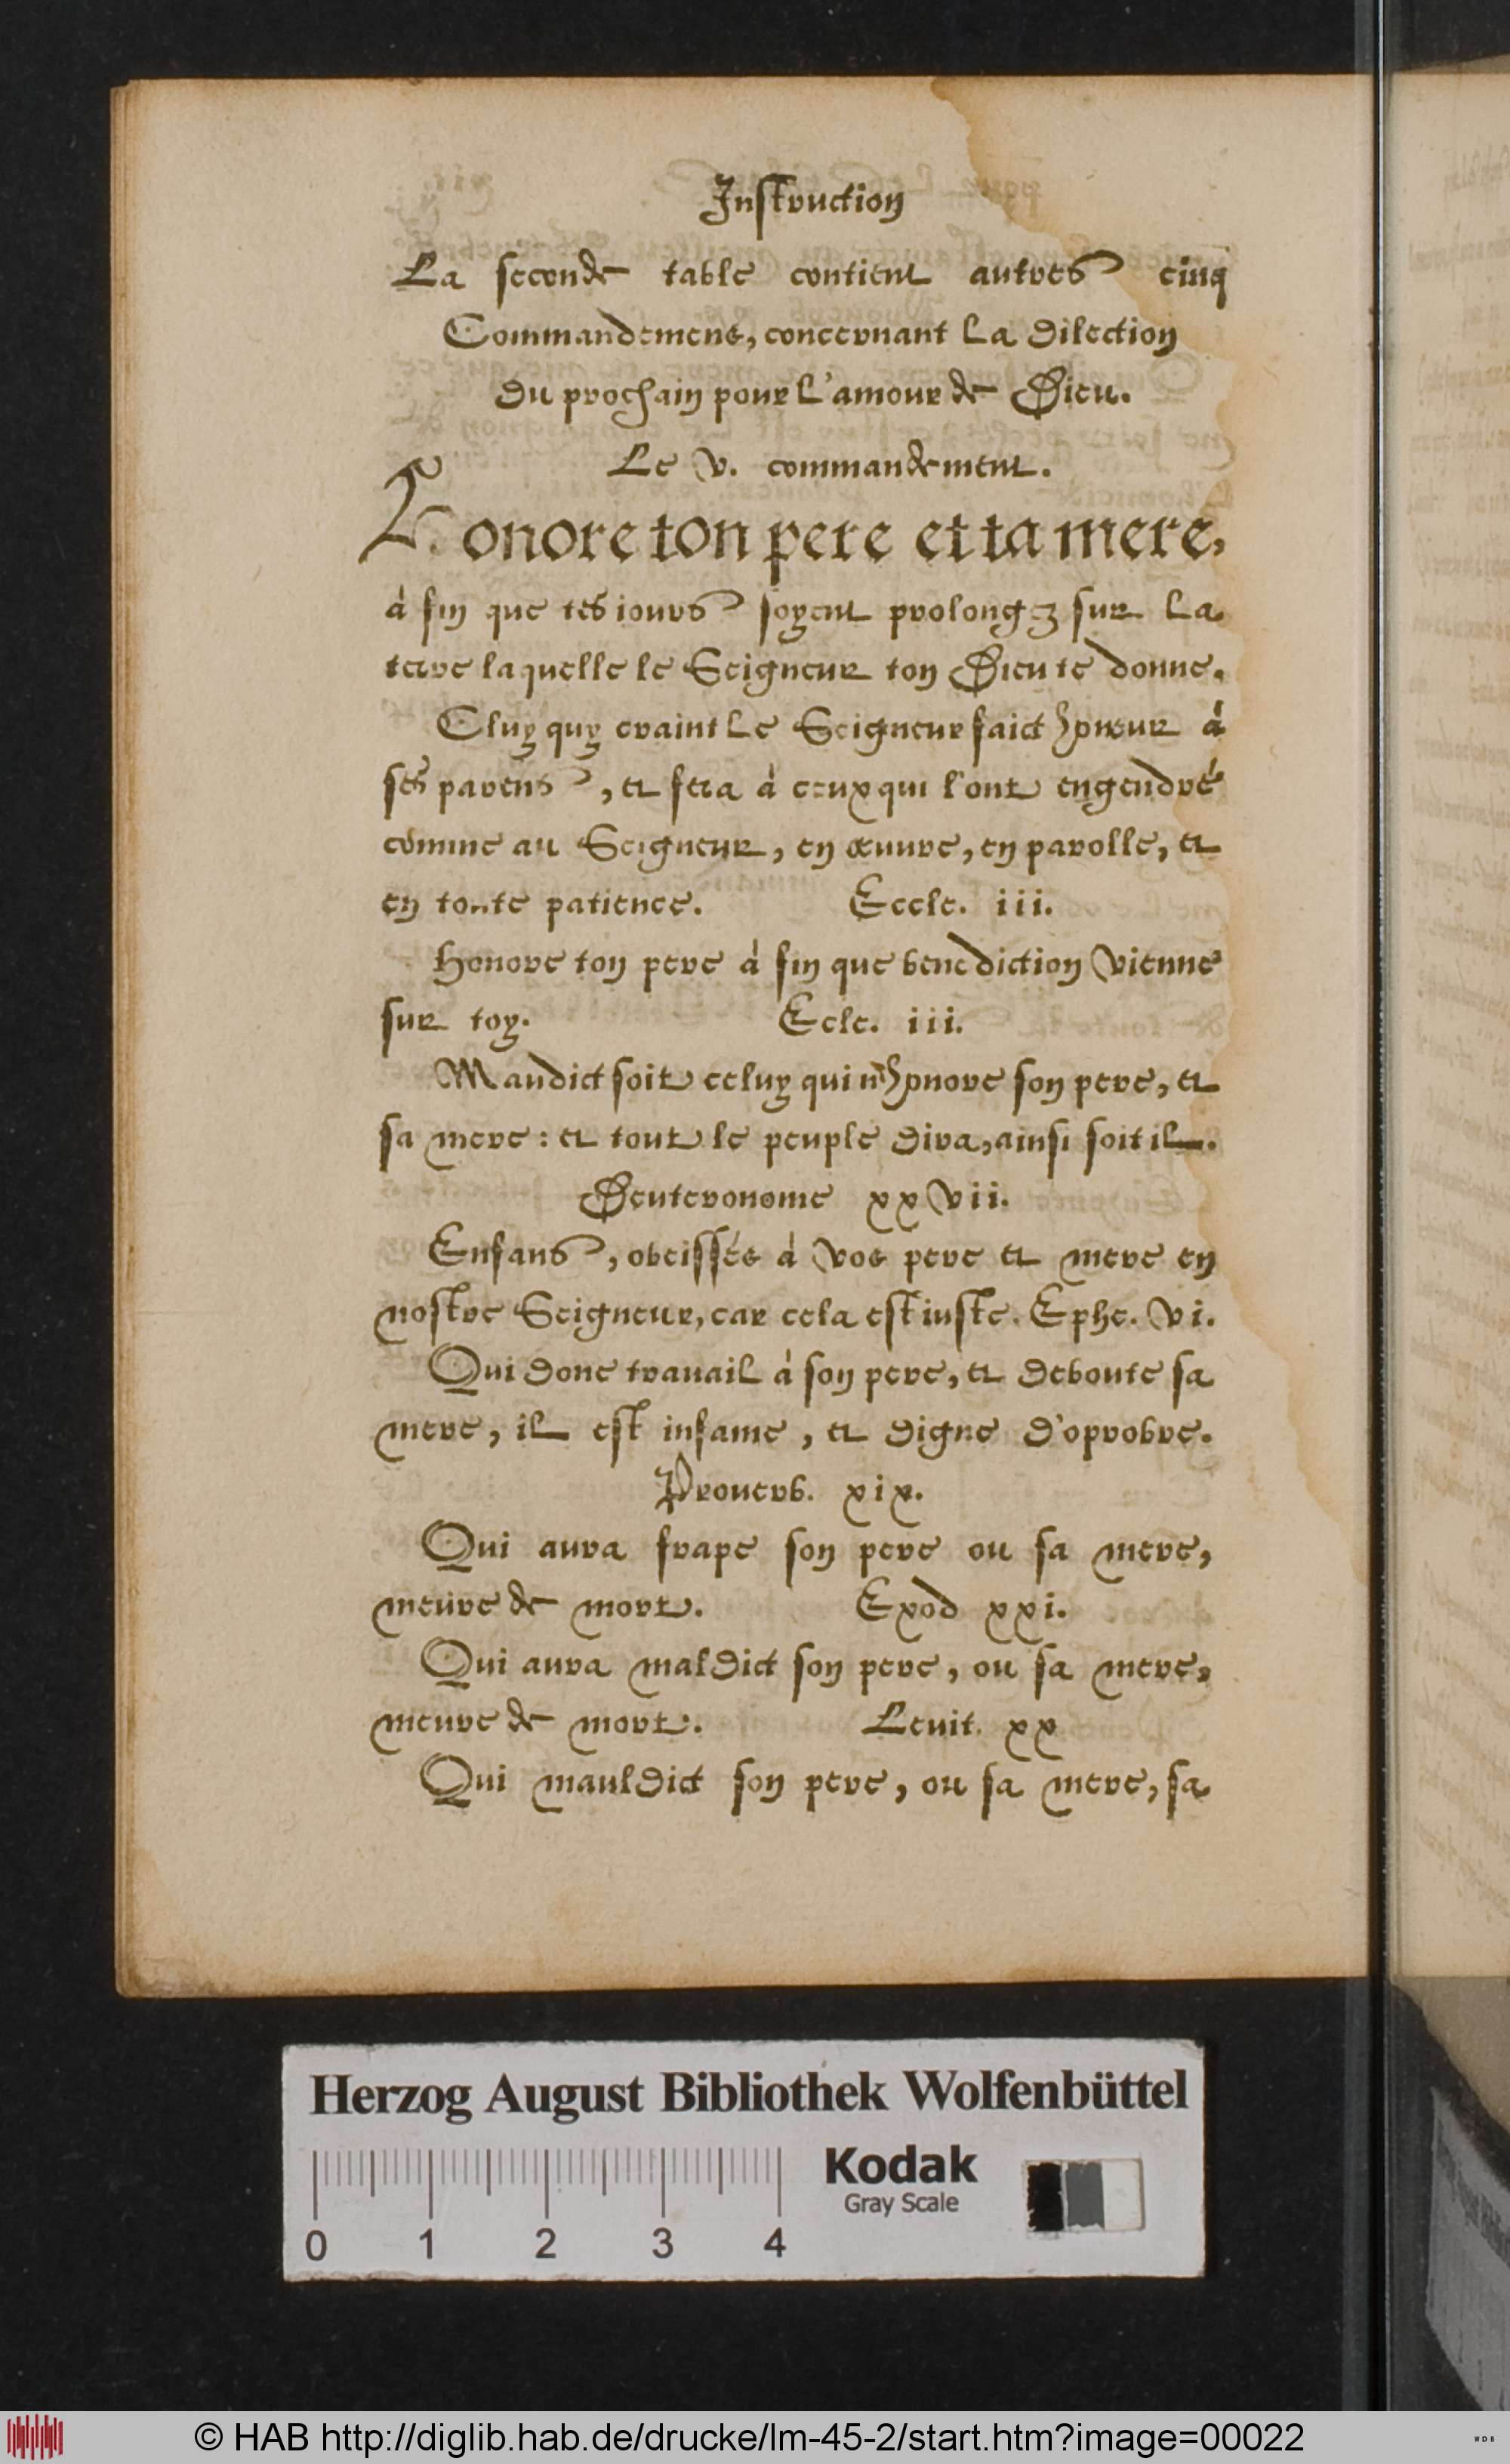 Instruction
La seconde table contient autres cinq
Commandemens, concernant la dilection
du prochain pour l'amour de Dieu.
Le v. commandement.
Honore ton pere et ta mere,
à fin que tes iours soyent prolongez sur la
terre laquelle le Seigneur ton Dieu te donne.
Cluy quy craint le Seigneur faict honneur à
ses parens, et fera à ceux qui l'ont engendré
comme au Seigneur, en œuure, en parolle, et
en toute patience. Eccle. iii.
Honore ton pere à fin que benediction vienne
sur toy. Ecle. iii.
Maudict soit celuy qui n'honore son pere, et
sa mere: et tout le peuple dira, ainsi soit il.
Deuteronome xxvii.
Enfans, obeissés à vos pere et mere en
nostre Seigneur, car cela est iuste. Ephe. vi.
Qui done trauail à son pere, et deboute sa
mere, il est infame, et digne d'oprobre.
Prouerb. xix.
Qui aura frape son pere ou sa mere,
meure de mort. Exod xxi.
Qui aura maldict son pere, ou sa mere,
meure de mort. Leuit. xx
Qui mauldict son pere, ou sa mere, sa
Herzog August Bibliothek Wolfenbüttel
Kodak
Gray Scale
0 1 2 3 4
© HAB http://diglib.hab.de/drucke/lm-45-2/start.htm?image=00022